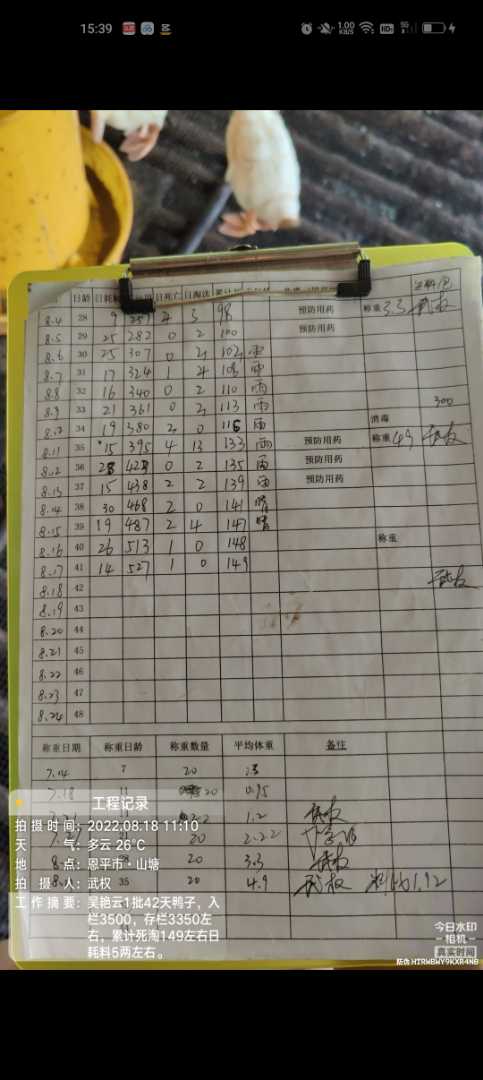 15:39 1.00 KB/S HD 5G
日龄 日耗料 日死亡 日淘汰
8.4 28 9 257 2 3 98 预防用药 称重 3.3 武权
8.5 29 25 282 0 2 100 预防用药
8.6 30 25 307 0 2 102 雨
8.7 31 17 324 1 4 108 雨
8.8 32 16 340 0 2 110 雨
8.9 33 21 361 0 2 113 雨 300
34 19 380 2 0 115 雨 消毒
8.11 35 15 395 4 13 133 雨 预防用药 称重 4.9 武权
8.12 36 28 423 0 2 135 雨 预防用药
8.13 37 15 438 2 2 139 雨 预防用药
8.14 38 30 468 2 0 141 晴
8.15 39 19 487 2 4 147 晴
8.16 40 26 513 1 0 148 称重
8.17 41 14 527 1 0 149
8.18 42 武权
8.19 43
8.20 44
8.21 45
8.22 46
8.23 47
8.24 48
称重日期 称重日龄 称重数量 平均体重 备注
7.14 7 20
7.18 11 20 0.95
1.2 武权
2.22
20 3.3 武权
35 20 4.9 武权 料比1.92
工程记录
拍摄时间：2022.08.18 11:10
天气：多云 26℃
地点：恩平市·山塘
拍摄人：武权
工作摘要：吴艳云1批42天鸭子，入
栏3500，存栏3350左
右，累计死淘149左右日
耗料5两左右。
今日水印
-相机-
真实时间
防伪 HTRWBWY9KXR4NB